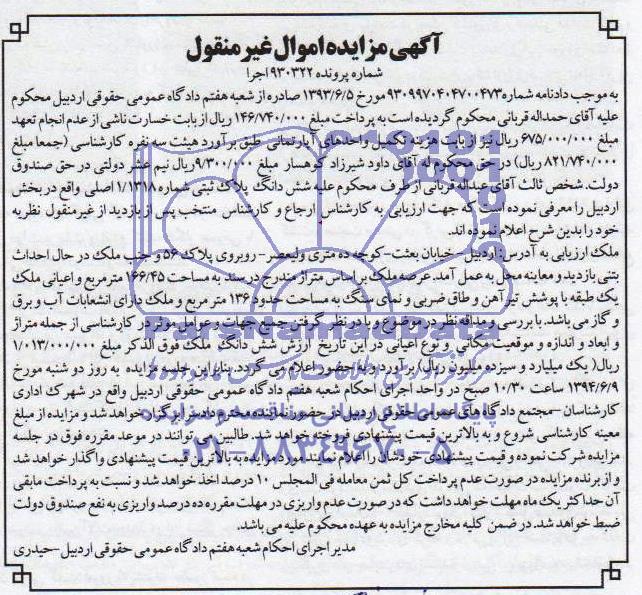 آگهی مزایده اموال غیر منقول
شماره پرونده ۹۳۰۳۲۲ اجرا
به موجب دادنامه شماره ۹۳۰۹۹۷۰۴۰۴۷۰۰۴۷۳ مورخ ۱۳۹۳/۶/۵ صادره از شعبه هفتم دادگاه عمومی حقوقی اردبیل محکوم
علیه آقای حمداله قربانی محکوم گردیده است به پرداخت مبلغ ۱۴۶/۷۴۰/۰۰۰ ریال از بابت خسارت ناشی از عدم انجام تعهد
مبلغ ۶۷۵/۰۰۰/۰۰۰ ریال نیز از بابت هزینه تکمیل واحدهای آپارتمانی طبق برآورد هیئت سه نفره کارشناسی (جمعا مبلغ
۸۲۱/۷۴۰/۰۰۰ ریال) در حق محکوم له آقای داود شیرزاد کوهسار مبلغ ۹/۳۰۰/۰۰۰ ریال نیم عشر دولتی در حق صندوق
دولت. شخص ثالث آقای عبداله قربانی از طرف محکوم علیه شش دانگ پلاک ثبتی شماره ۱/۱۳۱۸ اصلی واقع در بخش
اردبیل را معرفی نموده است که جهت ارزیابی به کارشناس ارجاع و کارشناس منتخب پس از بازدید از غیر منقول نظریه
خود را بدین شرح اعلام نموده اند.
ملک ارزیابی به آدرس: اردبیل - خیابان بعثت-کوچه ده متری ولیعصر- روبروی پلاک ۵۶ و جنب ملک در حال احداث
بتنی بازدید و معاینه محل به عمل آمد. عرصه ملک بر اساس متراژ مندرج در سند به مساحت ۱۶۶/۴۵ متر مربع و اعیانی ملک
یک طبقه با پوشش تیر آهن و طاق ضربی و نمای سنگ به مساحت حدود ۱۳۶ متر مربع و ملک دارای انشعابات آب و برق
و گاز می باشد. با بررسی و مداقه نظر در موضوع و با در نظر گرفتن جمیع جهات و عوامل موثر در کارشناسی از جمله متراژ
و ابعاد و اندازه و موقعیت مکانی و نوع اعیانی در این تاریخ ارزش شش دانگ ملک فوق الذکر مبلغ ۱/۰۱۳/۰۰۰/۰۰۰
ریال( یک میلیارد و سیزده میلیون ریال) برآورد و به حضور اعلام می گردد. بنابراین جلسه مزایده به روز دو شنبه مورخ
۱۳۹۴/۶/۹ ساعت ۱۰/۳۰ صبح در واحد اجرای احکام شعبه هفتم دادگاه عمومی حقوقی اردبیل واقع در شهرک اداری
کارشناسان - مجتمع دادگاه های عمومی حقوقی اردبیل در حضور نماینده محترم دادسرا برگزار خواهد شد و مزایده از مبلغ
معینه کارشناسی شروع و به بالاترین قیمت پیشنهادی فروخته خواهد شد. طالبین می توانند در موعد مقرره فوق در جلسه
مزایده شرکت نموده و قیمت پیشنهادی خودشان را اعلام نمایند مورد مزایده به بالاترین قیمت پیشنهادی واگذار خواهد شد
و از برنده مزایده در صورت عدم پرداخت کل ثمن معامله فی المجلس ۱۰ درصد اخذ خواهد شد و نسبت به پرداخت مابقی
آن حداکثر یک ماه مهلت خواهد داشت که در صورت عدم واریزی در مهلت مقرره ده درصد واریزی به نفع صندوق دولت
ضبط خواهد شد. در ضمن کلیه مخارج مزایده به عهده محکوم علیه می باشد.
مدیر اجرای احکام شعبه هفتم دادگاه عمومی حقوقی اردبیل-حیدری